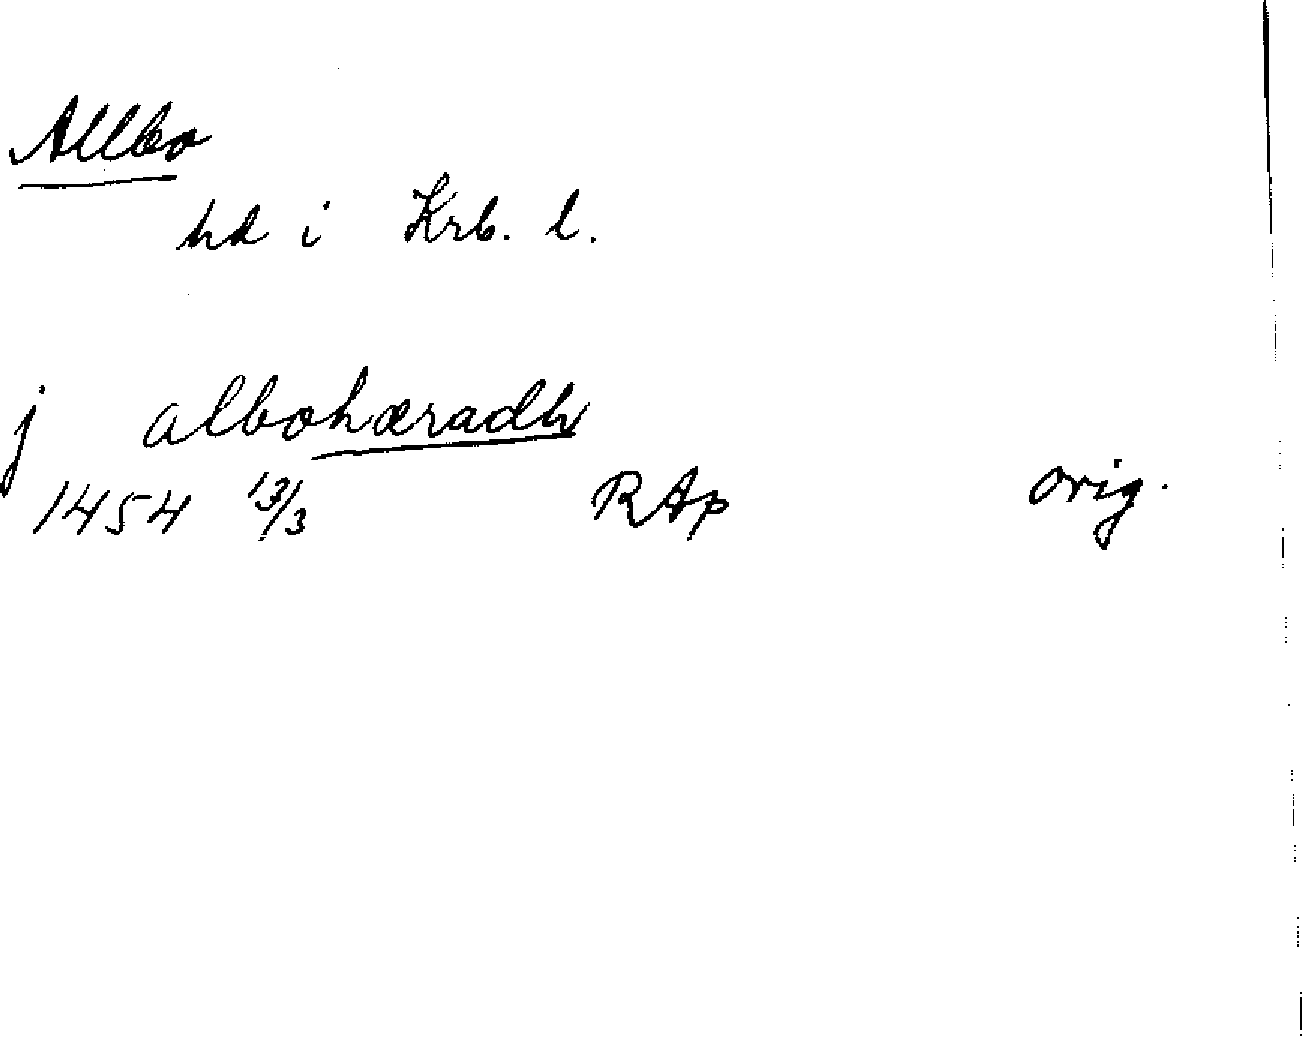 Allbo
hd i Krb. l.
j albohæradh
1454 13/3 RAp orig.